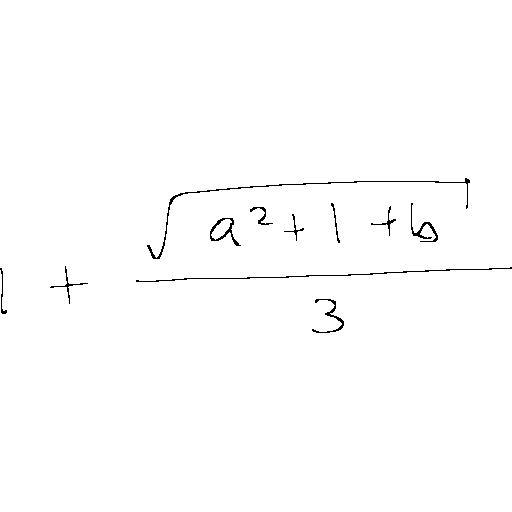 1 + \frac{\sqrt{a^2+1+b}}{3}